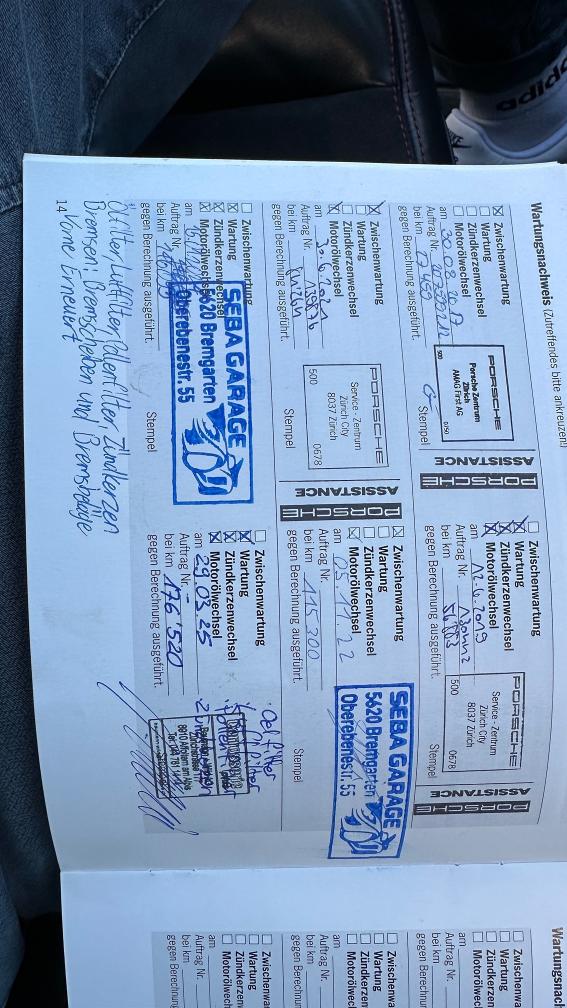 Wartungsnachweis (Zutreffendes bitte ankreuzen)
Zwischenwartung
Wartung
Zündkerzenwechsel
Motorölwechsel
am 30.08.2017
Auftrag Nr.
bei km
gegen Berechnung ausgeführt.
PORSCHE
Porsche Zentrum
Zürich
AMAG First AG
500
Stempel
PORSCHE
ASSISTANCE
Zwischenwartung
Wartung
Zündkerzenwechsel
Motorölwechsel
am 12.6.2019
Auftrag Nr.
bei km
gegen Berechnung ausgeführt.
PORSCHE
Service - Zentrum
Zürich City
8037 Zürich
500 0678
Stempel
PORSCHE
ASSISTANCE
Zwischenwartung
Wartung
Zündkerzenwechsel
Motorölwechsel
am
Auftrag Nr.
bei km
gegen Berechnung ausgeführt.
PORSCHE
Service - Zentrum
Zürich City
8037 Zürich
500 0678
Stempel
PORSCHE
ASSISTANCE
Zwischenwartung
Wartung
Zündkerzenwechsel
Motorölwechsel
am 05.11.22
Auftrag Nr.
bei km 115300
gegen Berechnung ausgeführt.
SEBA GARAGE
5620 Bremgarten
Oberebenestr. 55
Stempel
Zwischenwartung
Wartung
Zündkerzenwechsel
Motorölwechsel
am
Auftrag Nr.
bei km
gegen Berechnung ausgeführt.
SEBA GARAGE
5620 Bremgarten
Oberebenestr. 55
Stempel
Zwischenwartung
Wartung
Zündkerzenwechsel
Motorölwechsel
am 29.03.25
Auftrag Nr. -
bei km 176'520
gegen Berechnung ausgeführt.
Oel filter
Ölfilter, Luftfilter, Pollenfilter Zündkerzen
Bremsen: Bremsscheiben und Bremsbeläge
Vorne Erneuert
14
Wartungsnach
Zwischenwartung
Wartung
Zündkerze
Motorölwech
am
Auftrag Nr.
bei km
gegen Berechnun
Zwischenwartung
Wartung
Zündkerze
Motorölwe
am
Auftrag Nr.
bei km
gegen Berechn
Zwischenwartung
Wartung
Zündkerze
Motorölw
am
Auftrag Nr.
bei km
gegen Berechn
adidas